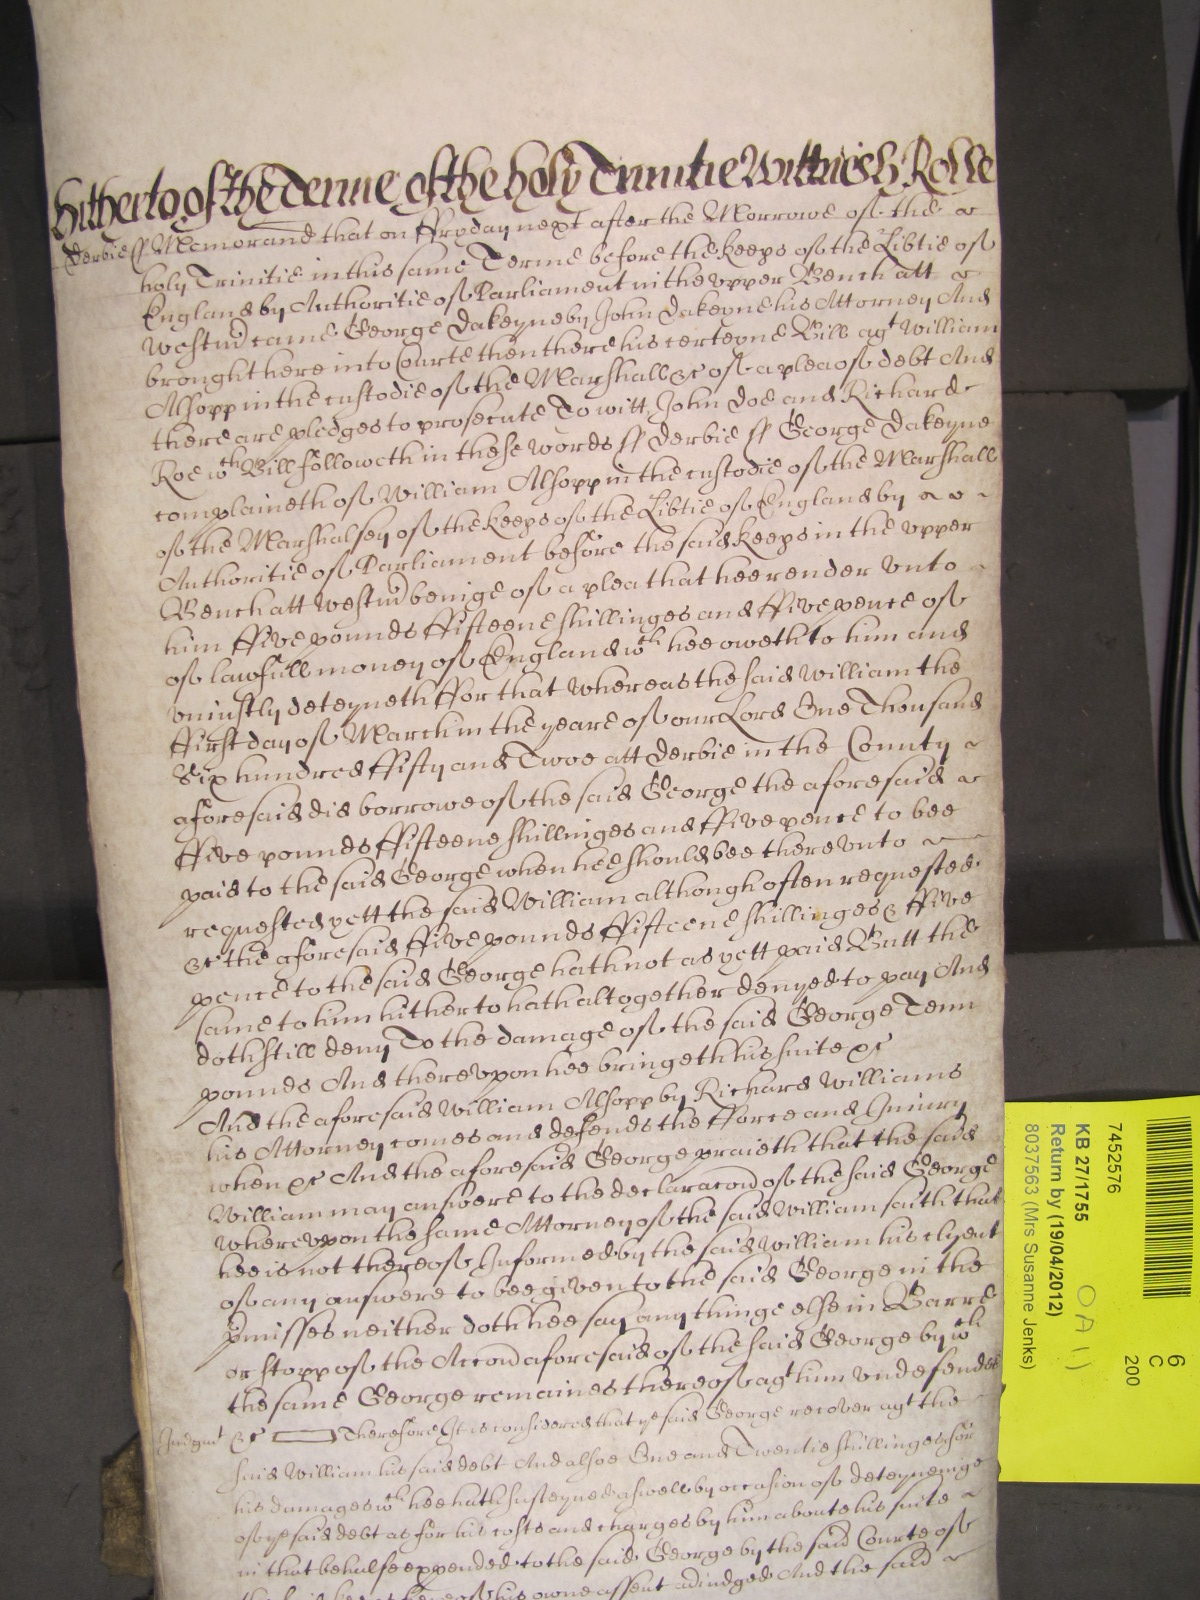 hitherto of the Terme of the holy Trinitie Wittnesh Rolle
Derbie ss Memorand that on ffryday next after the Morrowe of the
holy Trinitie in this same Terme before the keeps of the Libtie of
England by Authoritie of Parliament in the vpper Bench att
Westm̄ came George Dakeyne by John Dakeyne his Attorney And
brought here into Courte then there his certeyne Bill agt William
Alsopp in the custodie of the Marshall &c of a plea of debt And
there are pledges to prosecute To witt John Doe and Richard
Roe wch Bill followeth in these words ss Derbie ss George Dakeyne
complaineth of William Alsopp in the custodie of the Marshall
of the Marshalsey of the keeps of the Libtie of England by
Authoritie of Parliament before the said keeps in the vpper
Bench att Westm̄ beinge of a plea that hee render vnto
him ffive pounds ffifteene shillinges and ffive pence of
of lawfull money of England wch hee oweth to him and
vniustly deteyneth ffor that Whereas the said William the
ffirst day of March in the yeare of our Lord One Thousand
Six hundred ffifty and Twoe att Derbie in the County
aforesaid did borrowe of the said George the aforesaid
ffive pounds ffifteene shillinges and ffive pence to bee
paid to the said George when hee should bee therevnto
requested yett the said William although often requested
&c the aforesaid ffive pounds ffifteene shillinges & ffive
pence to the said George hath not as yett paid Butt the
same to him hitherto hath altogether denyed to pay And
doth still deny To the damage of the said George Tenn
pounds And therevpon hee bringeth his suite &c
And the aforesaid William Alsopp by Richard Williams
his Attorney comes and defends the fforce and Iniury
when &c And the aforesaid George praieth that the said
William may answere to the declaracon of the said George
Wherevpon the same Attorney of the said William saith that
hee is not thereof Informed by the said William his clyent
of any answere to bee given to the said George in the
pmisses neither doth hee say any thinge else in Barre
or stopp of the Accon aforesaid of the said George by wch
the same George remaines thereof agt him vndefended
Judgmt &c Therefore It is considered that ye said George recover agt the
said William his said debt And alsoe One and Twentie shillinges for
his damages wch hee hath susteyned aswell by occasion of deteyneinge
of ye said debt as for his costs and charges by him aboute his suite
in that behalfe expended to the said George by the said Courte of
his owne assent adiudged And the said
7452576
KB 27/1755
Return by (19/04/2012)
8037563 (Mrs Susanne Jenks)
6
C
200